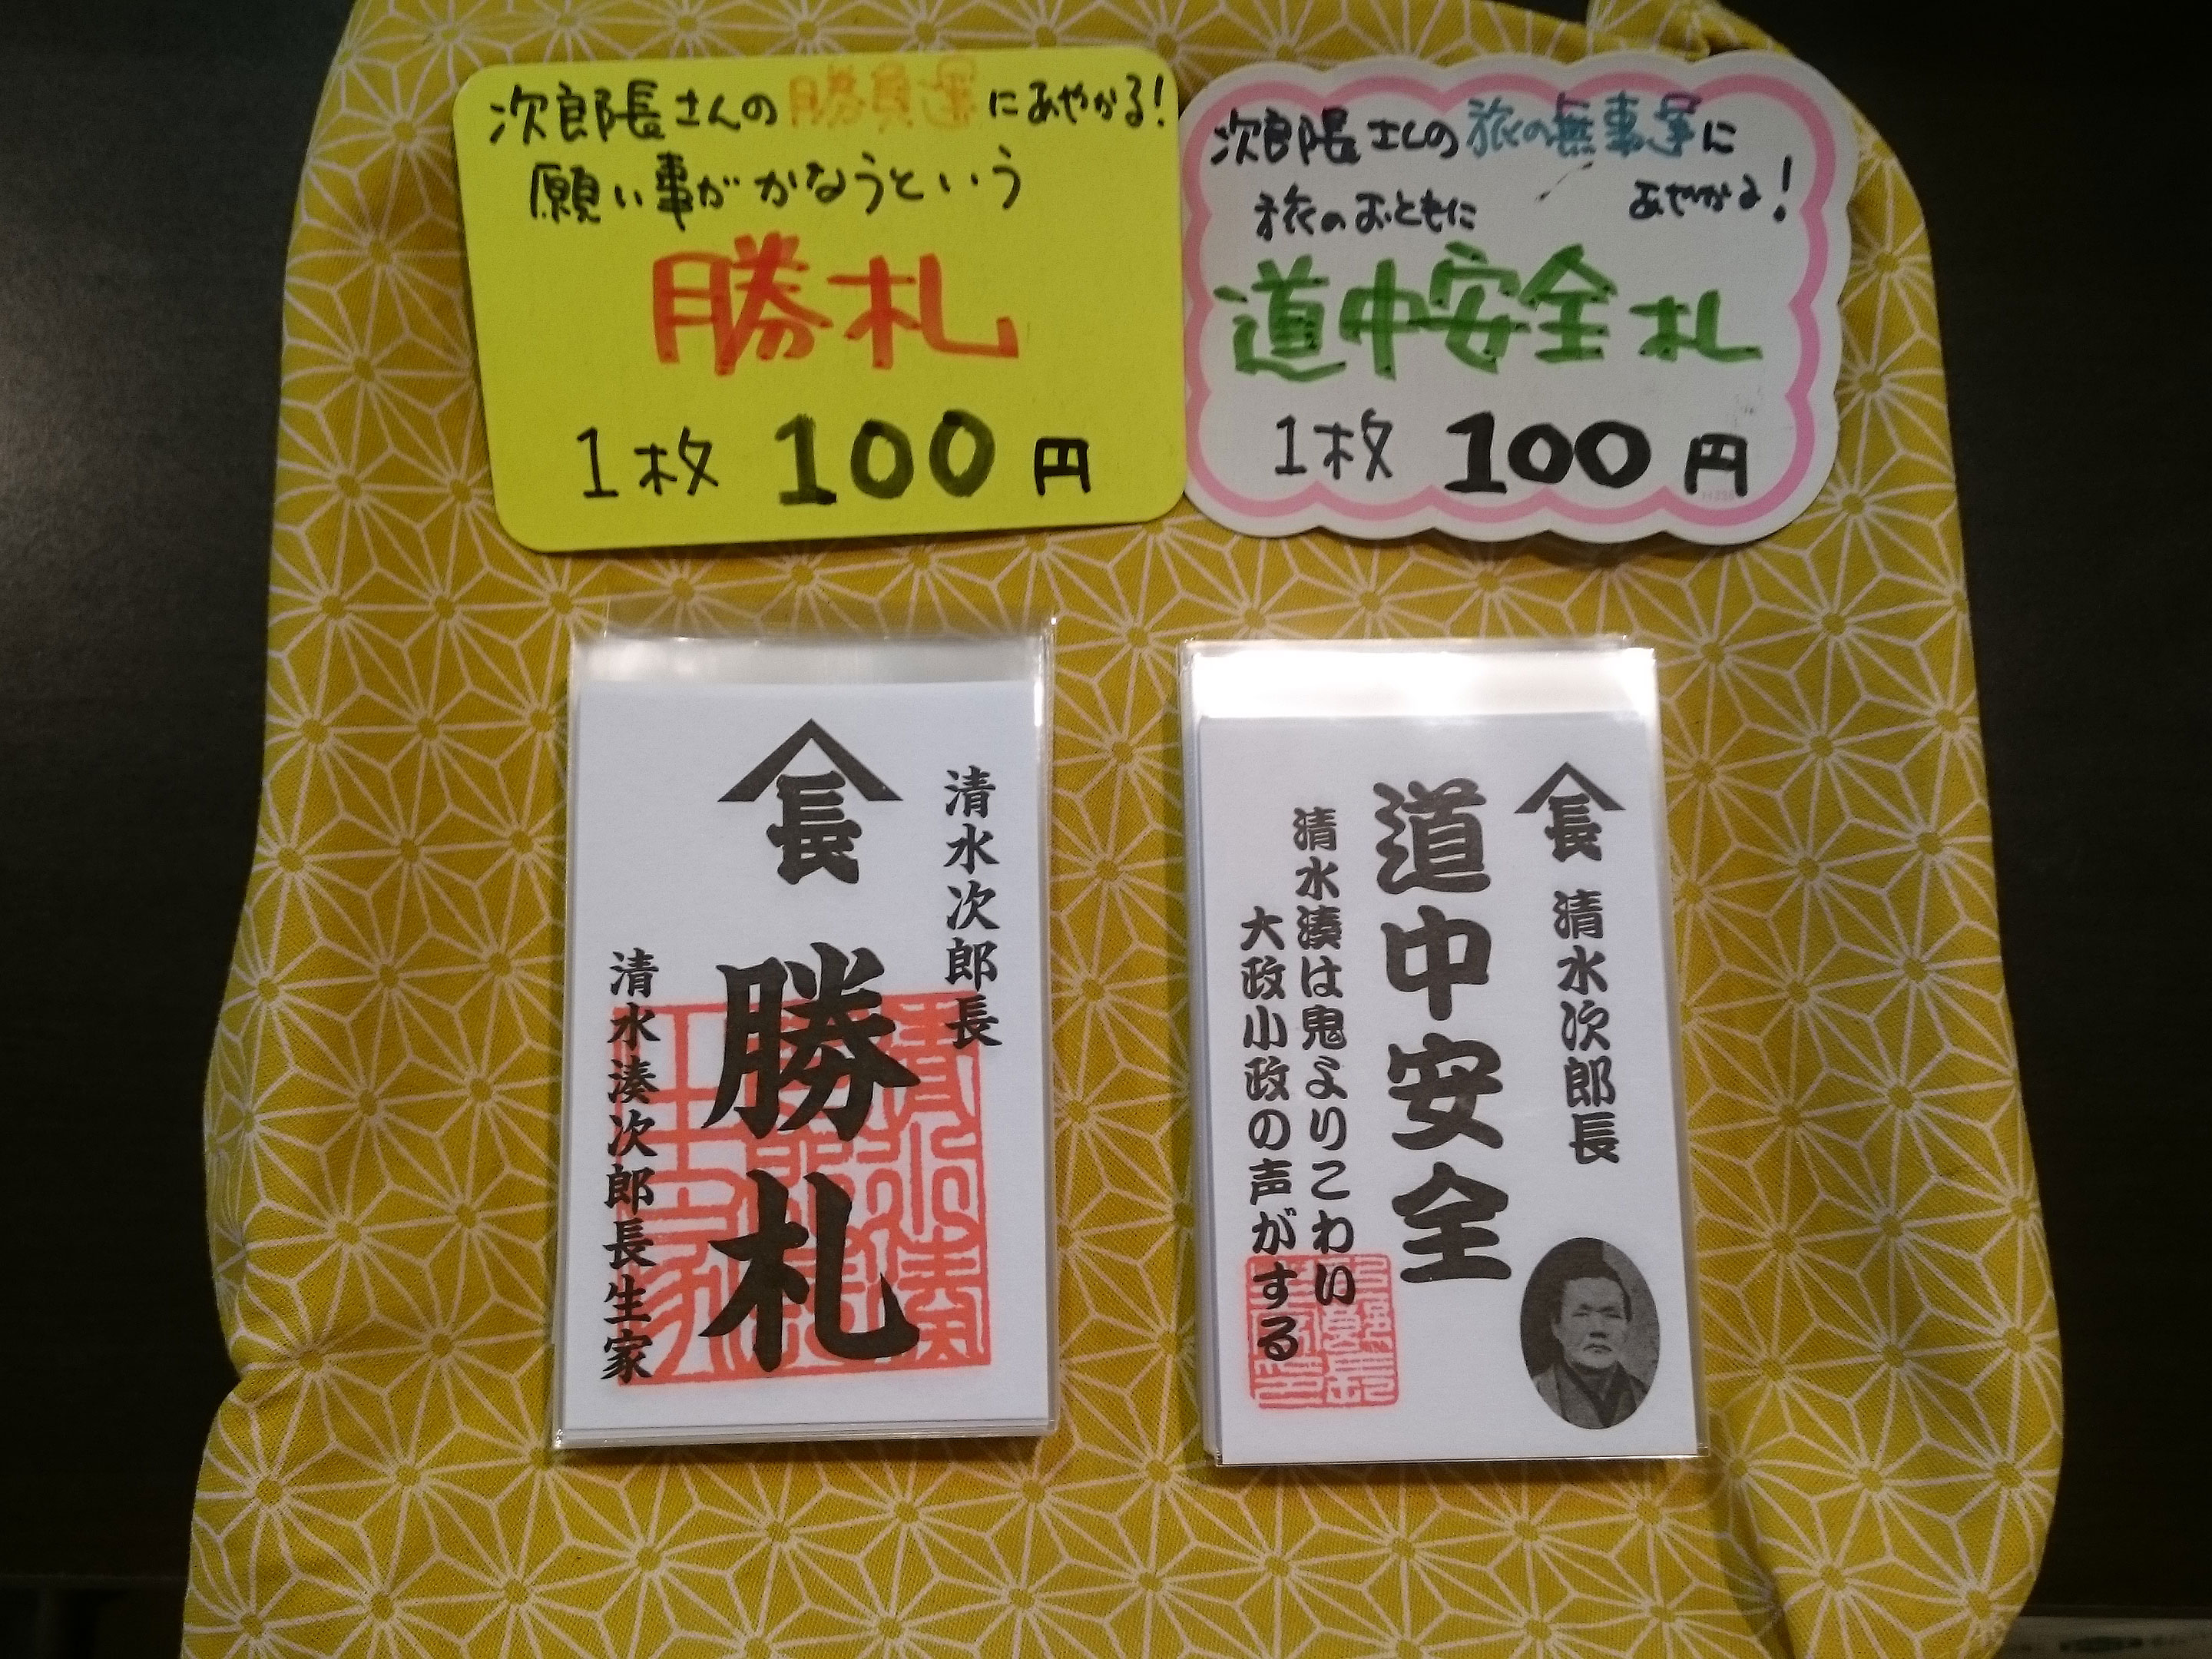 次郎長さんの勝負運にあやかる!
願い事がかなうという
勝札
1枚 100円
次郎長さんの旅の無事運に
あやかる!
旅のおともに
道中安全札
1枚 100円
清水次郎長
長
勝札
清水湊次郎長生家
長 清水次郎長
道中安全
清水湊は鬼よりこわい
大政小政の声がする